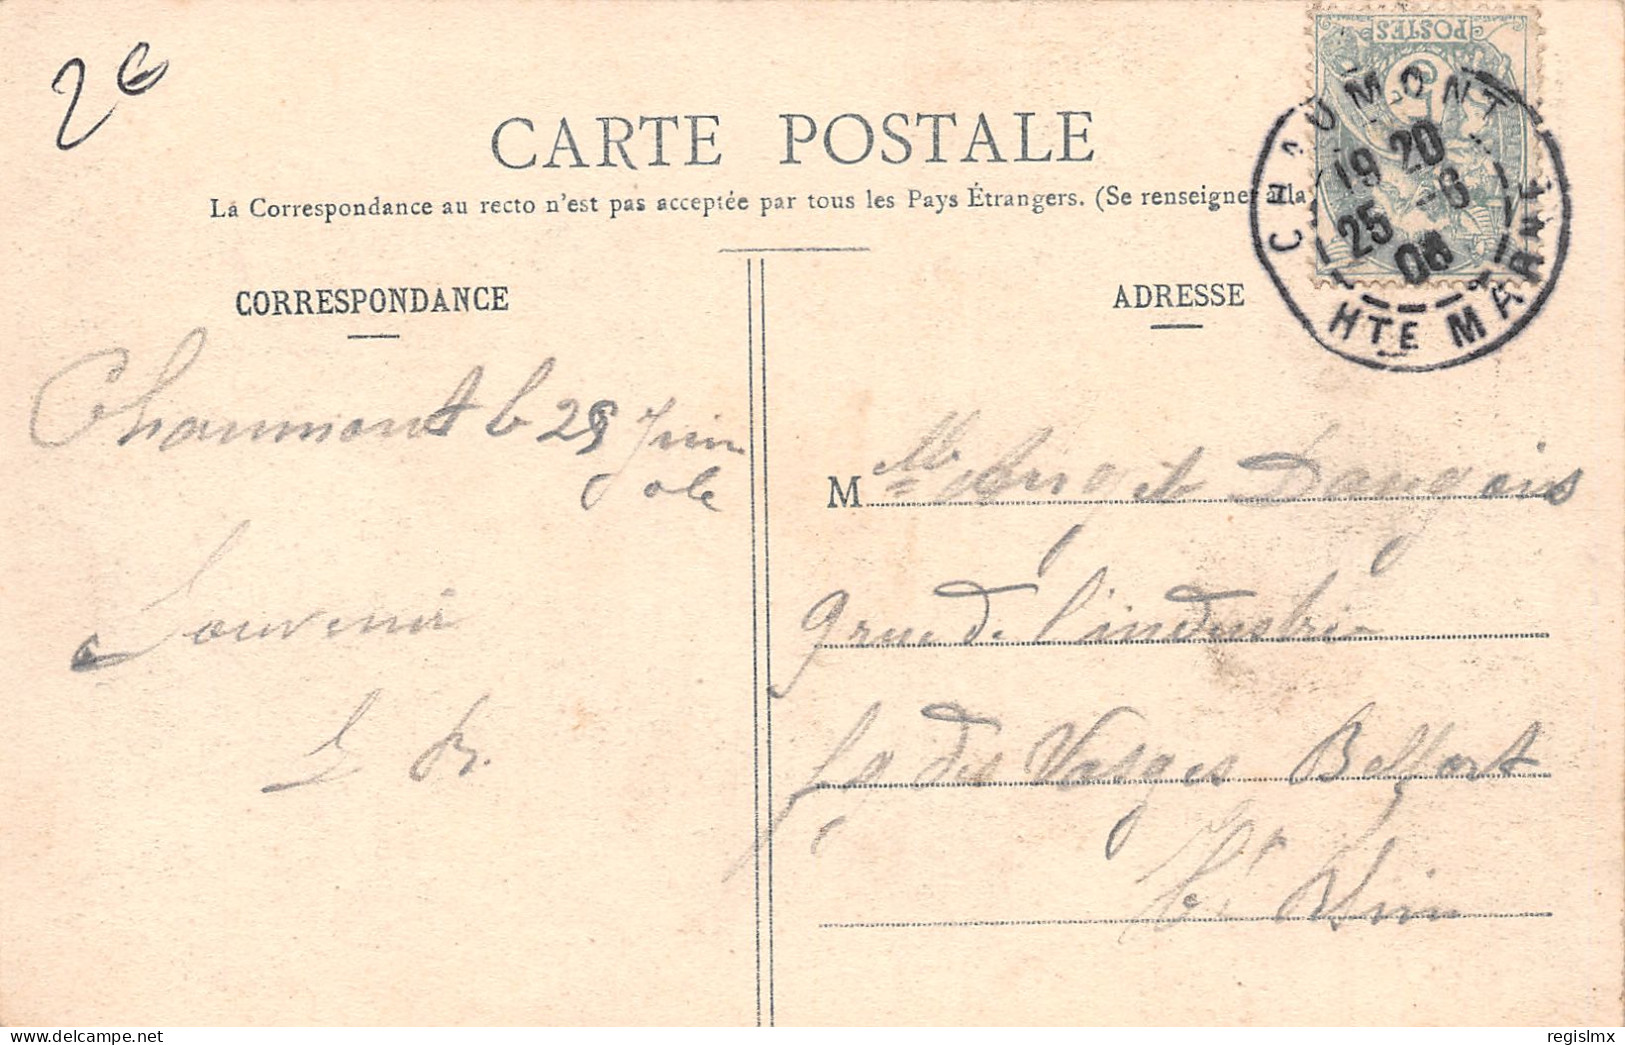 2€
CARTE POSTALE
La Correspondance au recto n'est pas acceptée par tous les Pays Étrangers. (Se renseigner à la
POSTES
5
CHAUMONT
19 20
25 -6
06
HTE MARNE
CORRESPONDANCE
ADRESSE
Chaumont le 25 Juin
Souvenir
M Mlle Dangois
9 rue de l'industrie
fg des Vosges Belfort
Ht Rhin
regislmx
www.delcampe.net